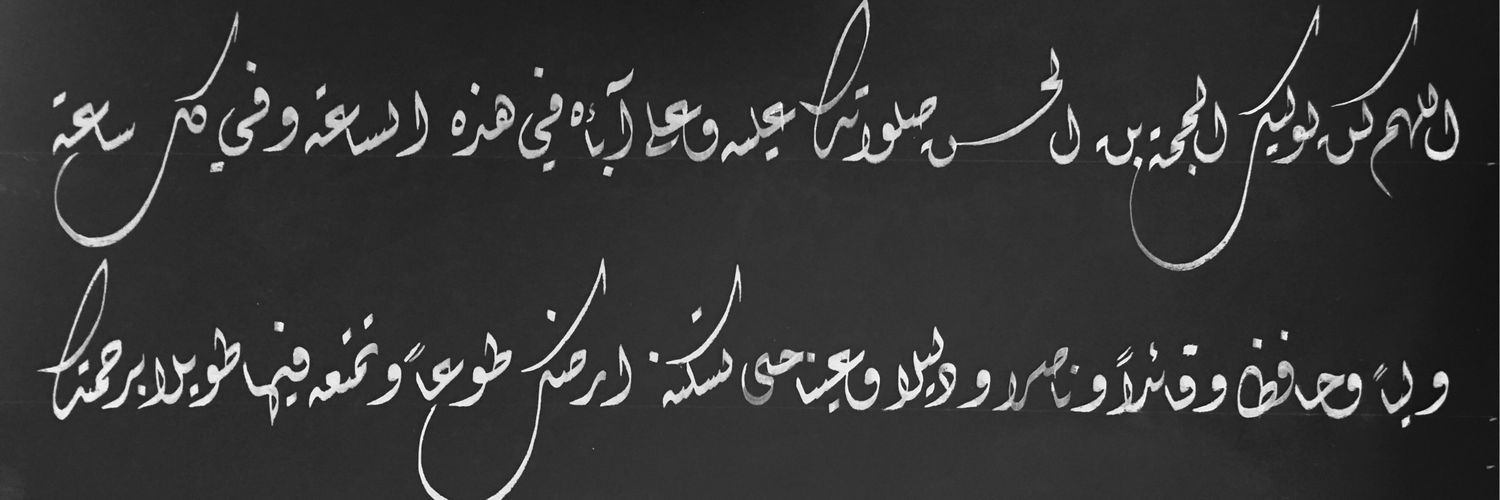 اللهم كن لوليك الحجة بن الحسن صلواتك عليه وعلى آبائه في هذه الساعة وفي كل ساعة
ولياً وحافظا وقائداً وناصرا ودليلا وعينا حتى تسكنه ارضك طوعاً وتمتعه فيها طويلا برحمتك